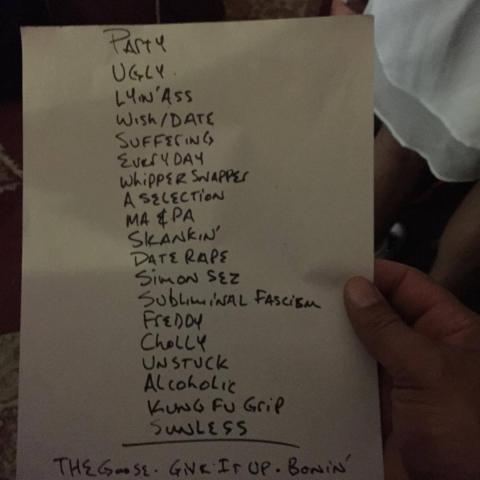 PARTY
UGLY
LYIN' ASS
WISH/DATE
SUFFERING
EVERYDAY
WHIPPERSNAPPER
A SELECTION
MA & PA
SKANKIN'
DATE RAPE
SIMON SEZ
SUBLIMINAL FASCISM
FREDDY
CHOLLY
UNSTUCK
ALCOHOLIC
KUNG FU GRIP
SUNLESS
THE GOOSE. GIVE IT UP. BONIN'